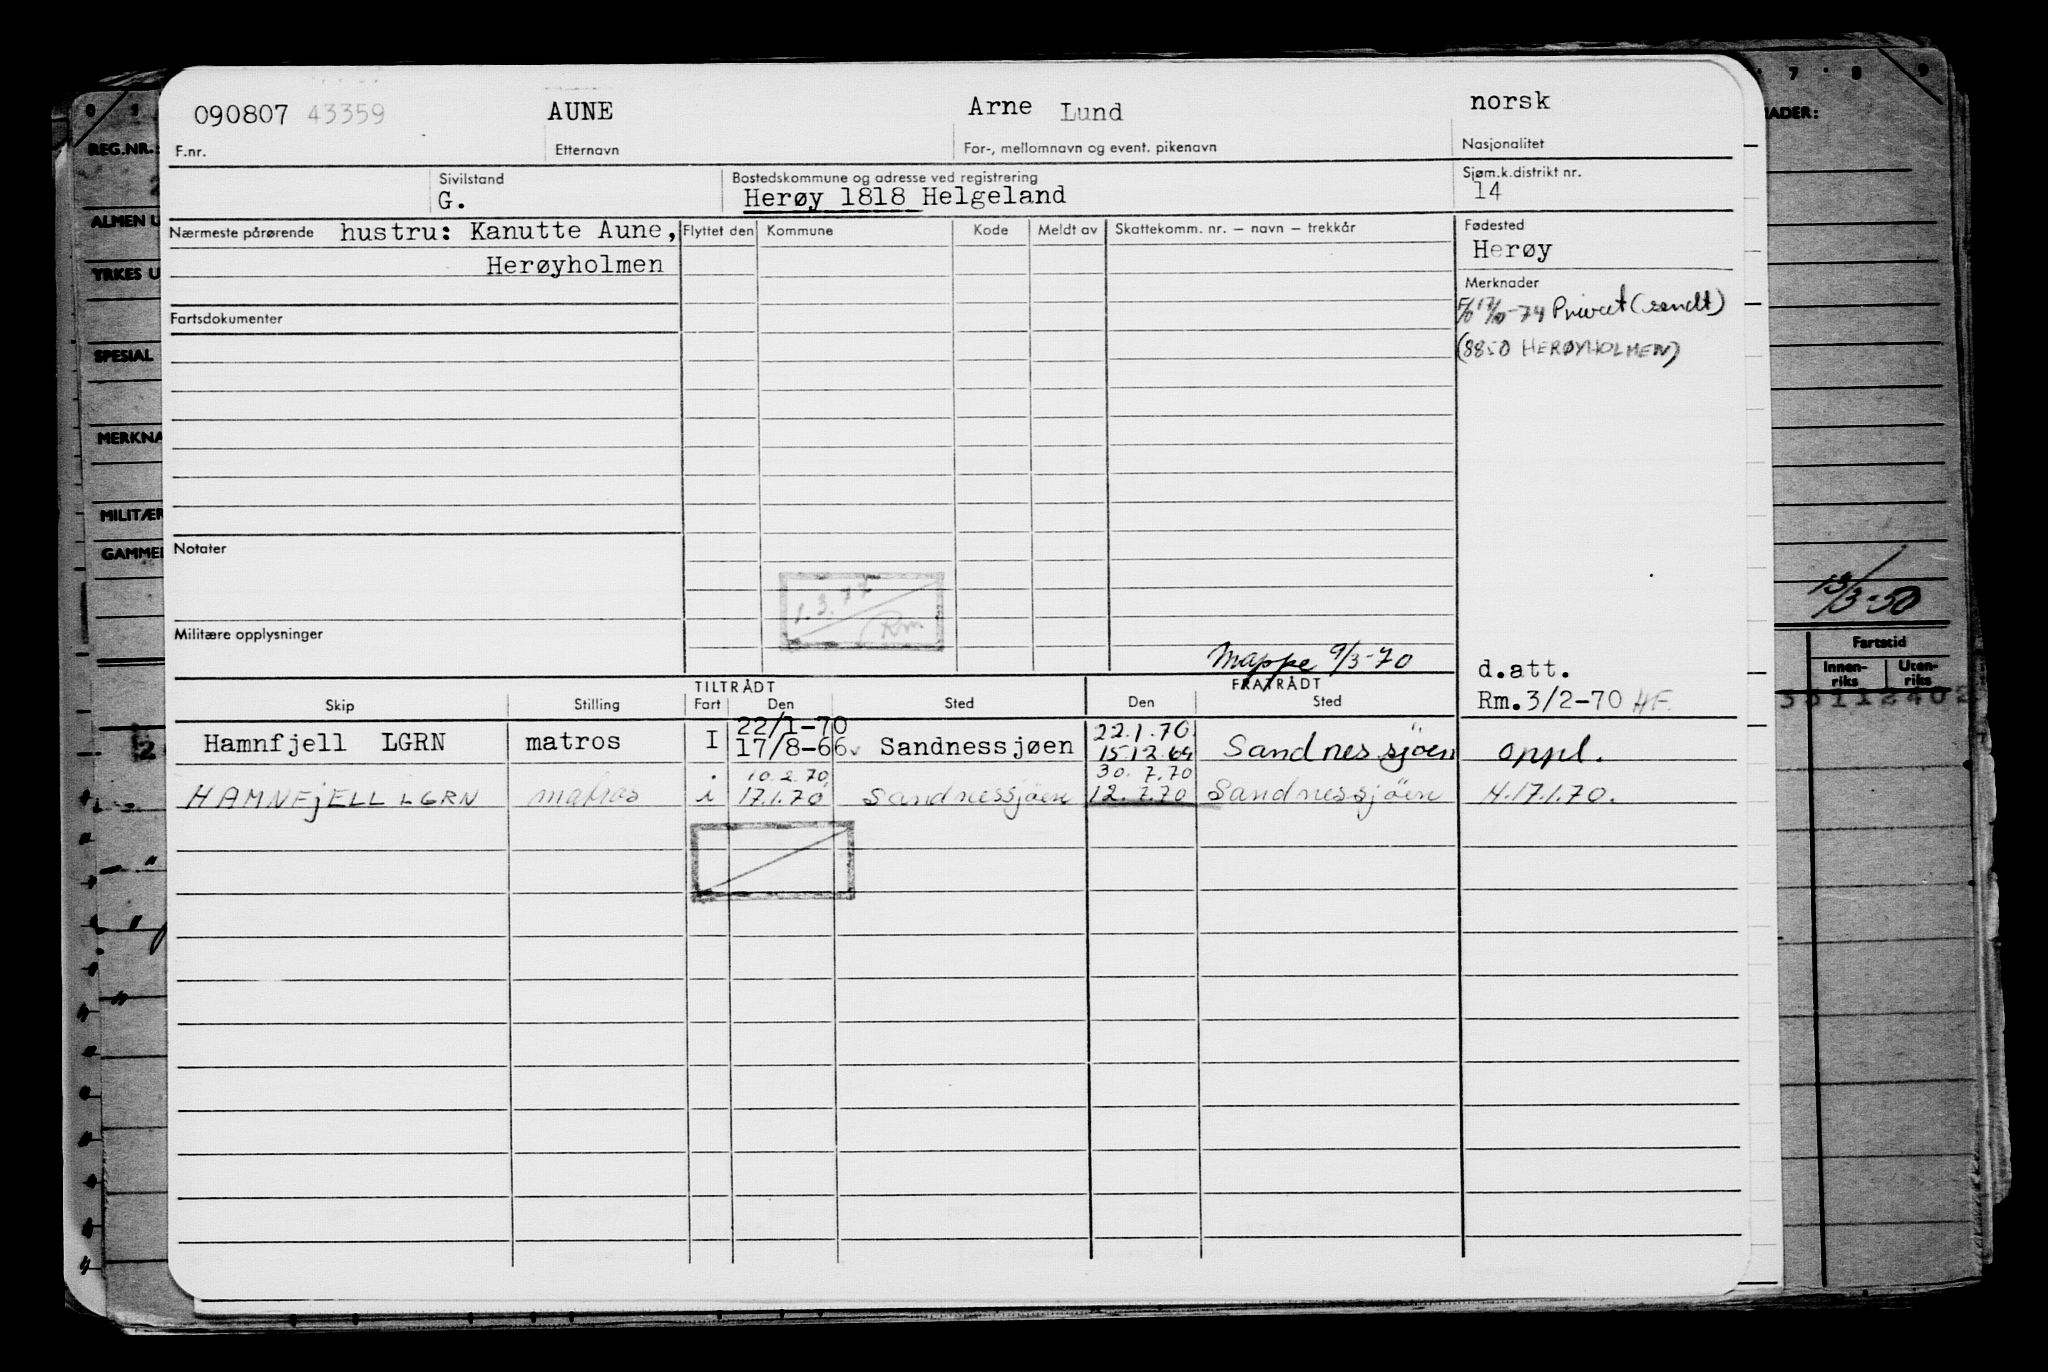 090807 43359 AUNE Arne Lund norsk
F.nr. Etternavn For-, mellomnavn og event. pikenavn Nasjonalitet
Sivilstand Bostedskommune og adresse ved registrering Sjøm.k.distrikt nr.
G. Herøy 1818 Helgeland 14
Nærmeste pårørende hustru: Kanutte Aune, Flyttet den Kommune Kode Meldt av Skattekomm. nr. — navn — trekkår Fødested
Herøyholmen Herøy
Merknader
-74 Privat (sendt)
Fartsdokumenter
(8850 HERØYHOLMEN)
Notater
1.3.77
Rm
Militære opplysninger
Mappe 9/3-70
d.att.
TILTRÅDT FRATRÅDT
Skip Stilling Fart Den Sted Den Sted Rm.3/2-70 HF.
22/1-70 22.1.70.
Hamnfjell LGRN matros I 17/8-66 Sandnessjøen 15.12.69 Sandnessjöen oppl.
i 10.2.70 30.7.70
HAMNFjELL LGRN matros i 17.1.70 Sandnessjöen 12.7.70 Sandnessjöen H.17.1.70.
REG.NR.:
ALMEN U
YRKES U
SPESIAL
MERKNA
MILITÆR
GAMMEL
NADER:
13/3-50
Fartstid
Innen-riks Uten-riks